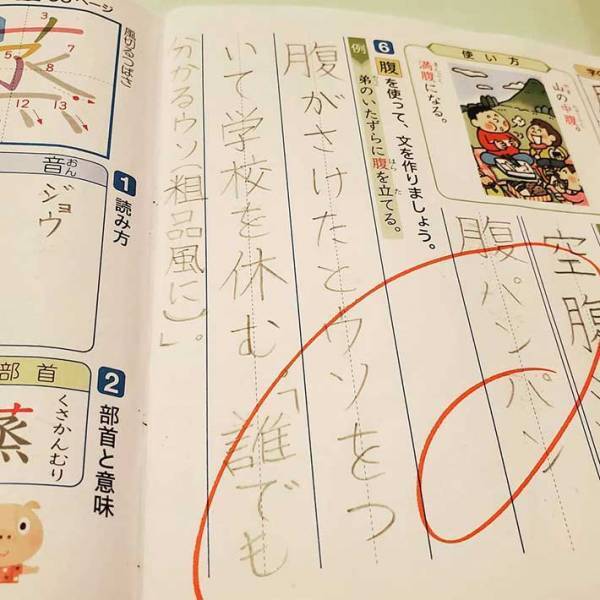 使い方
山の中腹。
満腹になる。
空腹
腹パンパン
6 腹を使って、文を作りましょう。
例 弟のいたずらに腹を立てる。
腹がさけたとウソをつ
いて学校を休む。「誰でも
分かるウソ粗品風に)」。
ページ
風切るつばさ
3
5
7
8
12
13
1 読み方
音
ジョウ
2 部首と意味
部首
くさかんむり
蒸